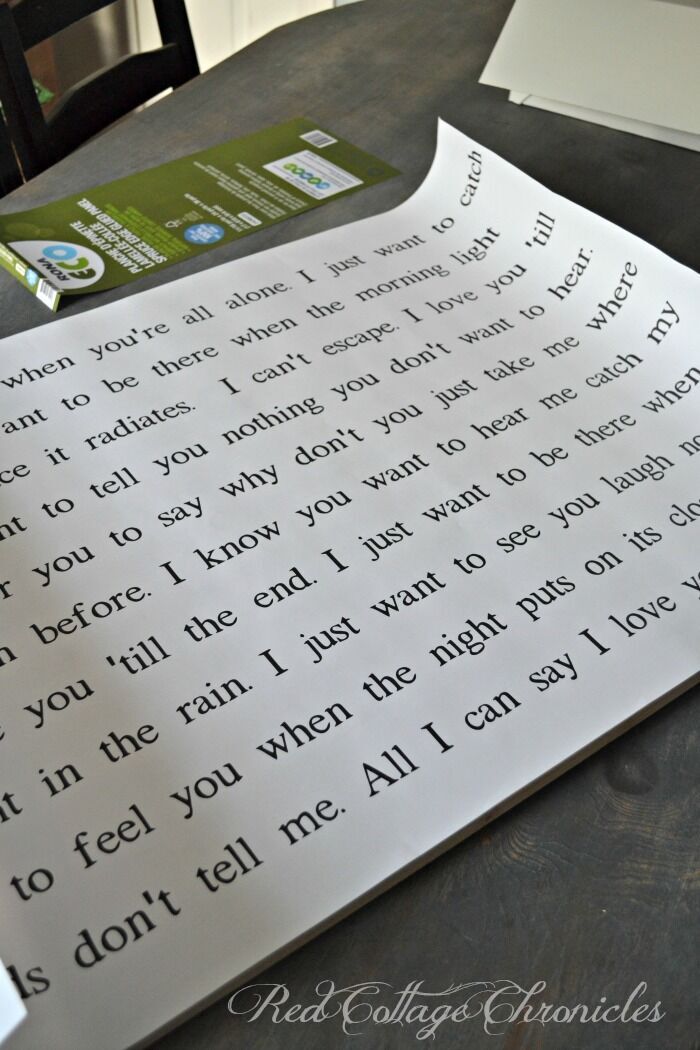 when you're all alone. I just want to catch
ant to be there when the morning light
ce it radiates. I can't escape. I love you 'till
nt to tell you nothing you don't want to hear.
r you to say why don't you just take me where
n before. I know you want to hear me catch my
e you 'till the end. I just want to be there when
nt in the rain. I just want to see you laugh n
to feel you when the night puts on its clo
ds don't tell me. All I can say I love y
RONA
ECO
PLANCHE D'ÉPINETTE
LAMELLÉE-COLLÉE
SPRUCE EDGE GLUED PANEL
Red Cottage Chronicles